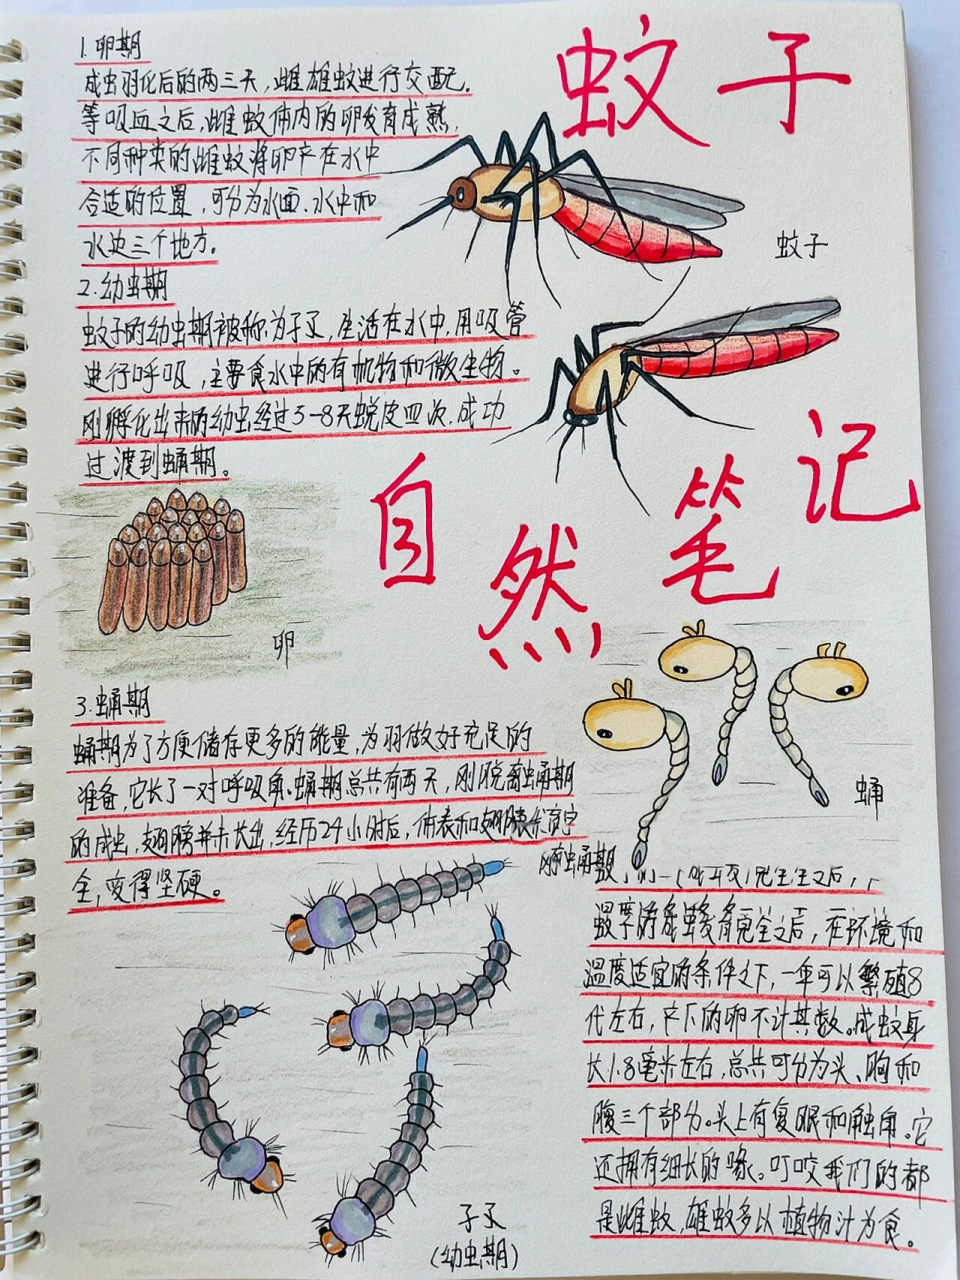 蚊子
1.卵期
成虫羽化后的两三天,雌雄蚊进行交配。
等吸血之后,雌蚊体内的卵发育成熟,
不同种类的雌蚊将卵产在水中
合适的位置,可分为水面、水中和
水边三个地方。
蚊子
2.幼虫期
蚊子的幼虫期被称为孑孓,生活在水中,用吸管
进行呼吸,主要食水中的有机物和微生物。
刚孵化出来的幼虫经过5-8天蜕皮四次,成功
过渡到蛹期。
自然笔记
卵
3.蛹期
蛹期为了方便储存更多的能量,为羽做好充足的
准备,它长了一对呼吸角。蛹期总共有两天,刚脱离蛹期
的成虫,翅膀并未长出,经历24小时后,体表和翅膀
全,变得坚硬。
蛹
之后,
发育完全之后,在环境和
温度适宜的条件之下,一年可以繁殖8
代左右,产下的卵不计其数。成蚊身
长1.8毫米左右,总共可分为头、胸和
腹三个部分。头上有复眼和触角。它
还拥有细长的喙。叮咬我们的都
是雌蚊,雄蚊多以植物汁为食。
孑孓
(幼虫期)